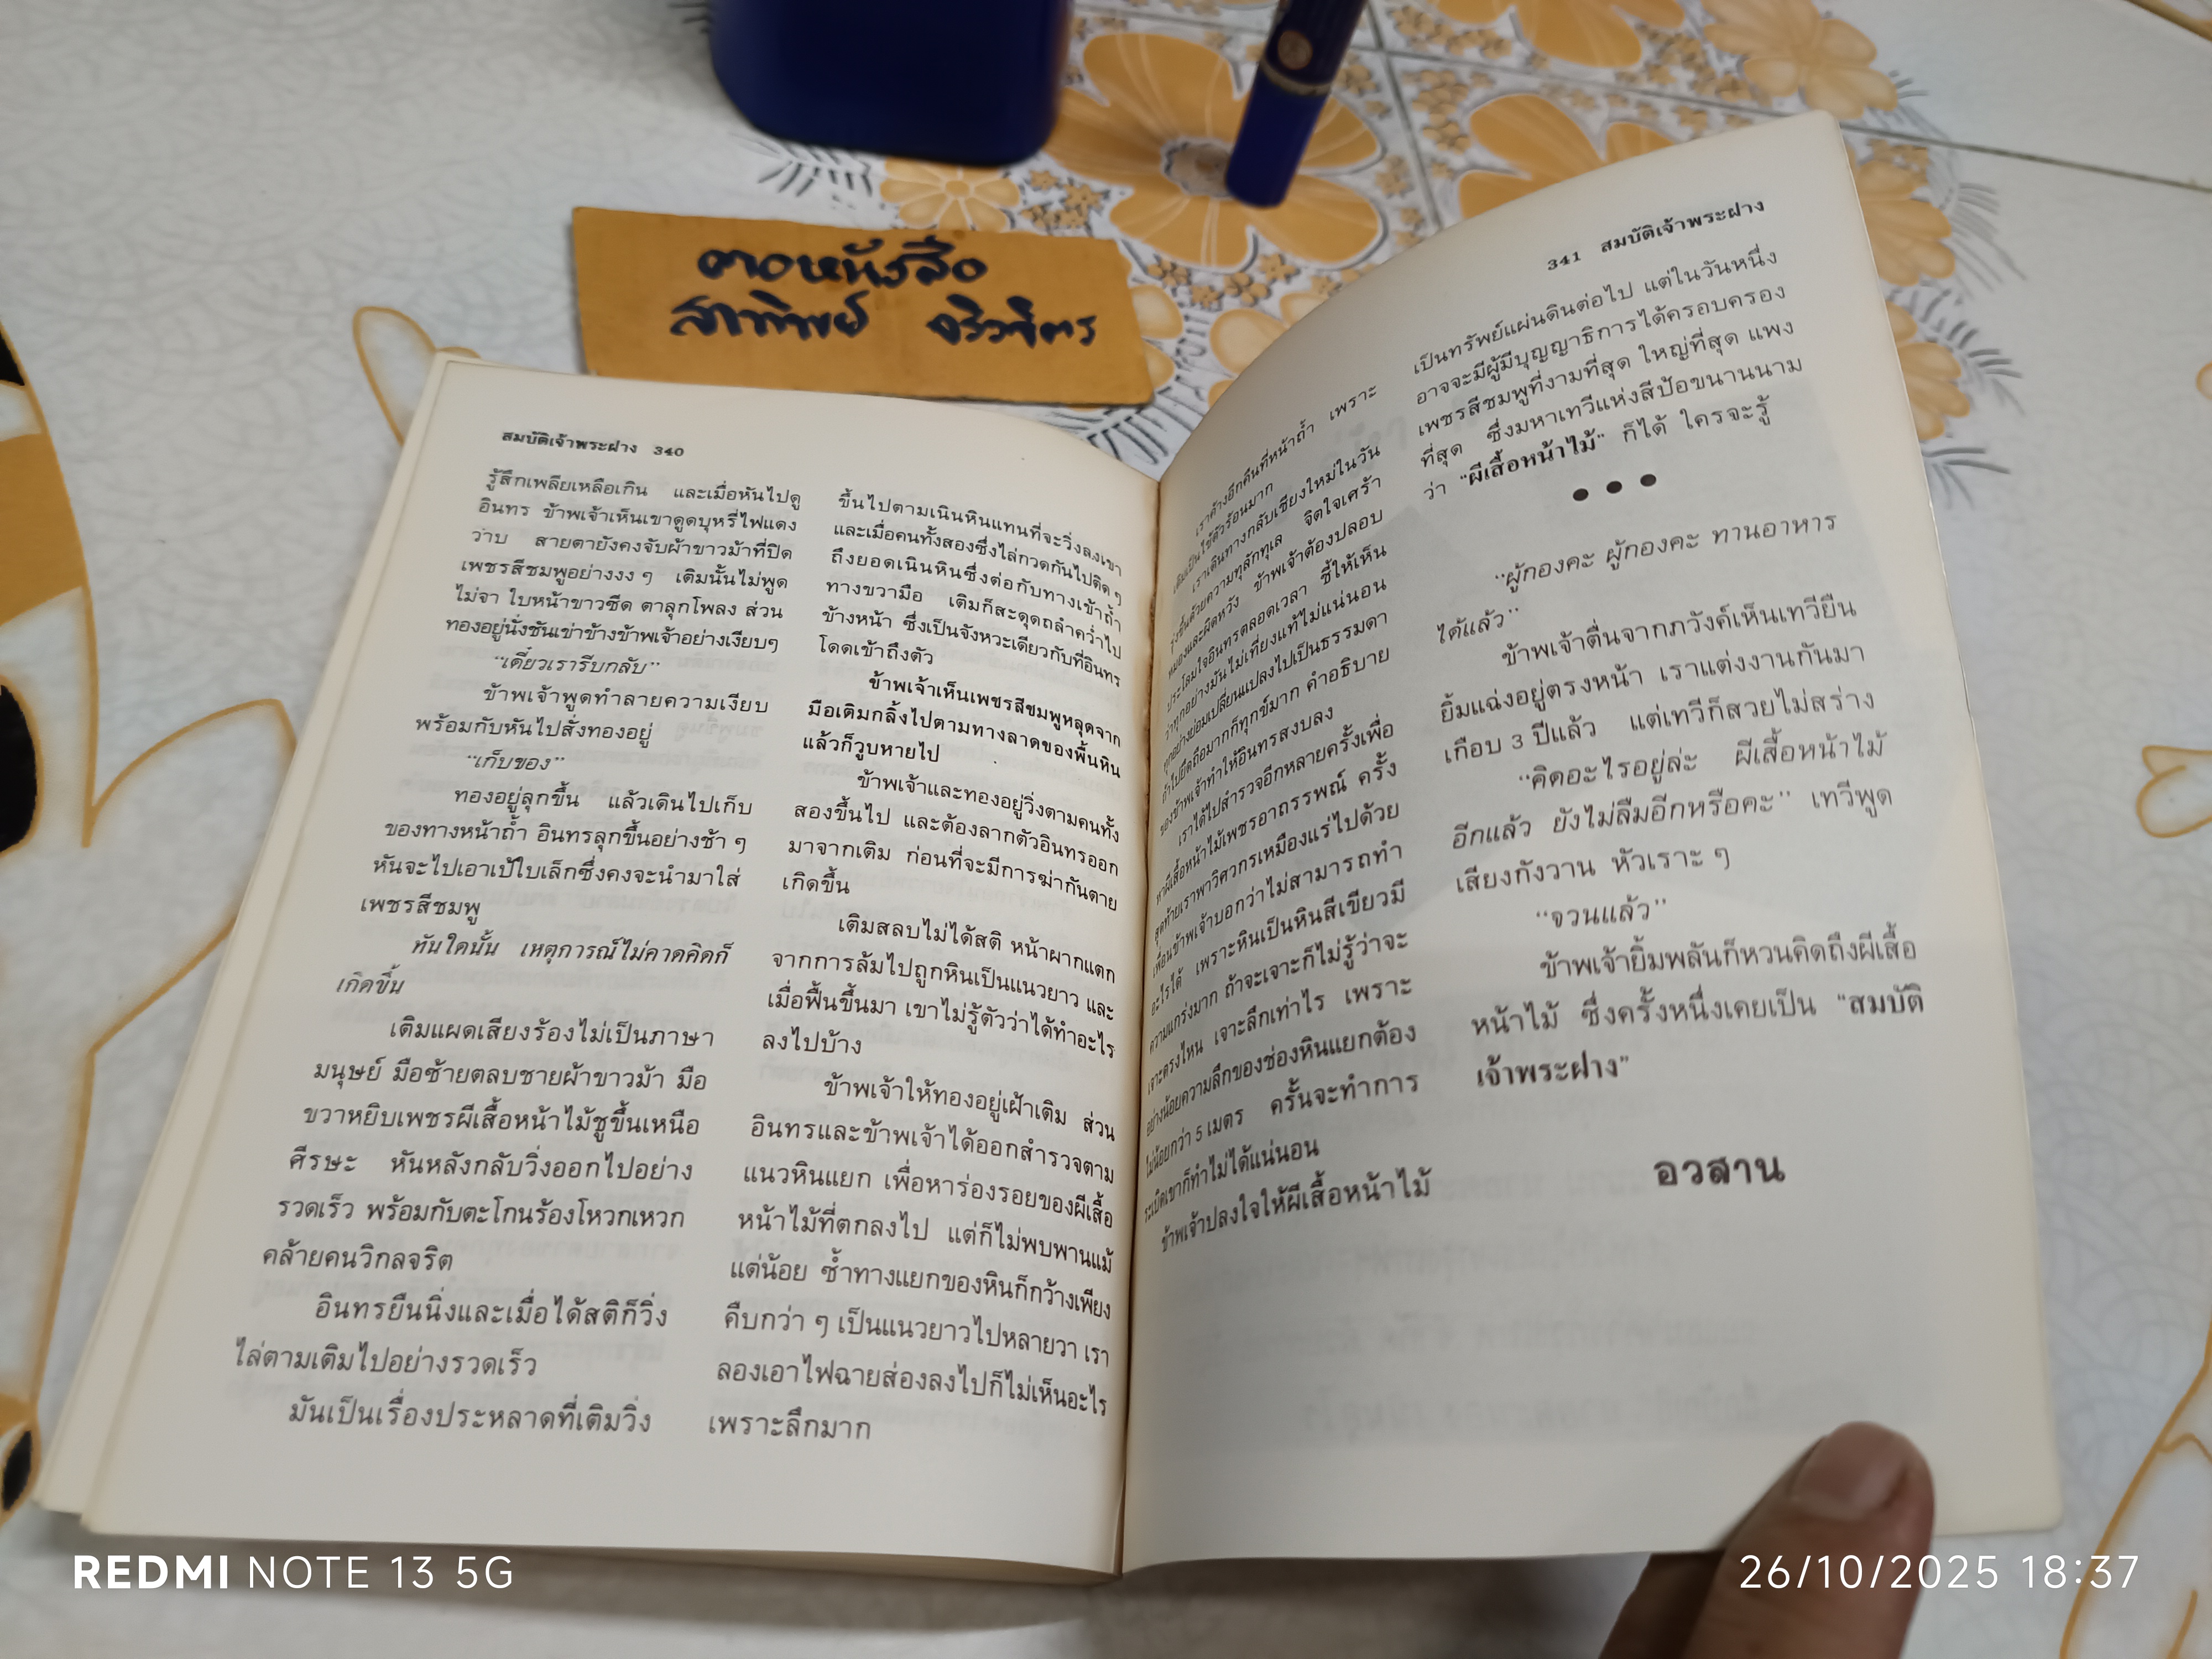 ตาอหนังสือ
สมบัติเจ้าพระฝาง 340
รู้สึกเพลียเหลือเกิน และเมื่อหันไปดู
อินทร ข้าพเจ้าเห็นเขาดูดบุหรี่ไฟแดง
ว่าบ สายตายังคงจับผ้าขาวม้าที่ปิด
เพชรสีชมพูอย่างงง ๆ เติมนั้นไม่พูด
ไม่จา ใบหน้าขาวซีด ตาลุกโพลง ส่วน
ทองอยู่นั่งชันเข่าข้างข้าพเจ้าอย่างเงียบๆ
“เดี๋ยวเรารีบกลับ”
ข้าพเจ้าพูดทำลายความเงียบ
พร้อมกับหันไปสั่งทองอยู่
“เก็บของ”
ทองอยู่ลุกขึ้น แล้วเดินไปเก็บ
ของทางหน้าถ้ำ อินทรลุกขึ้นอย่างช้า ๆ
หันจะไปเอาเป้ใบเล็กซึ่งคงจะนำมาใส่
เพชรสีชมพู
ทันใดนั้น เหตุการณ์ไม่คาดคิดก็
เกิดขึ้น
เติมแผดเสียงร้องไม่เป็นภาษา
มนุษย์ มือซ้ายตลบชายผ้าขาวม้า มือ
ขวาหยิบเพชรผีเสื้อหน้าไม้ชูขึ้นเหนือ
ศีรษะ หันหลังกลับวิ่งออกไปอย่าง
รวดเร็ว พร้อมกับตะโกนร้องโหวกเหวก
คล้ายคนวิกลจริต
อินทรยืนนิ่งและเมื่อได้สติก็วิ่ง
ไล่ตามเติมไปอย่างรวดเร็ว
มันเป็นเรื่องประหลาดที่เติมวิ่ง
ขึ้นไปตามเนินหินแทนที่จะวิ่งลงเขา
และเมื่อคนทั้งสองซึ่งไล่กวดกันไปติด ๆ
ถึงยอดเนินหินซึ่งต่อกับทางเข้าถ้ำ
ทางขวามือ เติมก็สะดุดถลำคว่ำไป
ข้างหน้า ซึ่งเป็นจังหวะเดียวกับที่อินทร
โดดเข้าถึงตัว
ข้าพเจ้าเห็นเพชรสีชมพูหลุดจาก
มือเติมกลิ้งไปตามทางลาดของพื้นหิน
แล้วก็วูบหายไป
ข้าพเจ้าและทองอยู่วิ่งตามคนทั้ง
สองขึ้นไป และต้องลากตัวอินทรออก
มาจากเติม ก่อนที่จะมีการฆ่ากันตาย
เกิดขึ้น
เติมสลบไม่ได้สติ หน้าผากแตก
จากการล้มไปถูกหินเป็นแนวยาว และ
เมื่อฟื้นขึ้นมา เขาไม่รู้ตัวว่าได้ทำอะไร
ลงไปบ้าง
ข้าพเจ้าให้ทองอยู่เฝ้าเติม ส่วน
อินทรและข้าพเจ้าได้ออกสำรวจตาม
แนวหินแยก เพื่อหาร่องรอยของผีเสื้อ
หน้าไม้ที่ตกลงไป แต่ก็ไม่พบพานแม้
แต่น้อย ซ้ำทางแยกของหินก็กว้างเพียง
คืบกว่า ๆ เป็นแนวยาวไปหลายวา เรา
ลองเอาไฟฉายส่องลงไปก็ไม่เห็นอะไร
เพราะลึกมาก
341 สมบัติเจ้าพระฝาง
เราค้างอีกคืนที่หน้าถ้ำ เพราะ
เติมเป็นไข้ตัวร้อนมาก
เราเดินทางกลับเชียงใหม่ในวัน
รุ่งขึ้นด้วยความทุลักทุเล จิตใจเศร้า
หมองและผิดหวัง ข้าพเจ้าต้องปลอบ
ประโลมใจอินทรตลอดเวลา ชี้ให้เห็น
ว่าทุกอย่างมันไม่เที่ยงแท้ไม่แน่นอน
ทุกอย่างย่อมเปลี่ยนแปลงไปเป็นธรรมดา
ถ้าไปยึดถือมากก็ทุกข์มาก คำอธิบาย
ของข้าพเจ้าทำให้อินทรสงบลง
เราได้ไปสำรวจอีกหลายครั้งเพื่อ
หาผีเสื้อหน้าไม้เพชรอาถรรพณ์ ครั้ง
สุดท้ายเราพาวิศวกรเหมืองแร่ไปด้วย
เพื่อนข้าพเจ้าบอกว่าไม่สามารถทำ
อะไรได้ เพราะหินเป็นหินสีเขียวมี
ความแกร่งมาก ถ้าจะเจาะก็ไม่รู้ว่าจะ
เจาะตรงไหน เจาะลึกเท่าไร เพราะ
อย่างน้อยความลึกของช่องหินแยกต้อง
ไม่น้อยกว่า 5 เมตร ครั้นจะทำการ
ระเบิดเขาก็ทำไม่ได้แน่นอน
ข้าพเจ้าปลงใจให้ผีเสื้อหน้าไม้
เป็นทรัพย์แผ่นดินต่อไป แต่ในวันหนึ่ง
อาจจะมีผู้มีบุญญาธิการได้ครอบครอง
เพชรสีชมพูที่งามที่สุด ใหญ่ที่สุด แพง
ที่สุด ซึ่งมหาเทวีแห่งสีป้อขนานนาม
ว่า “ผีเสื้อหน้าไม้” ก็ได้ ใครจะรู้
● ● ●
“ผู้กองคะ ผู้กองคะ ทานอาหาร
ได้แล้ว”
ข้าพเจ้าตื่นจากภวังค์เห็นเทวียืน
ยิ้มแฉ่งอยู่ตรงหน้า เราแต่งงานกันมา
เกือบ 3 ปีแล้ว แต่เทวีก็สวยไม่สร่าง
“คิดอะไรอยู่ล่ะ ผีเสื้อหน้าไม้
อีกแล้ว ยังไม่ลืมอีกหรือคะ” เทวีพูด
เสียงกังวาน หัวเราะ ๆ
“จวนแล้ว”
ข้าพเจ้ายิ้มพลันก็หวนคิดถึงผีเสื้อ
หน้าไม้ ซึ่งครั้งหนึ่งเคยเป็น “สมบัติ
เจ้าพระฝาง”
อวสาน
REDMI NOTE 13 5G
26/10/2025 18:37